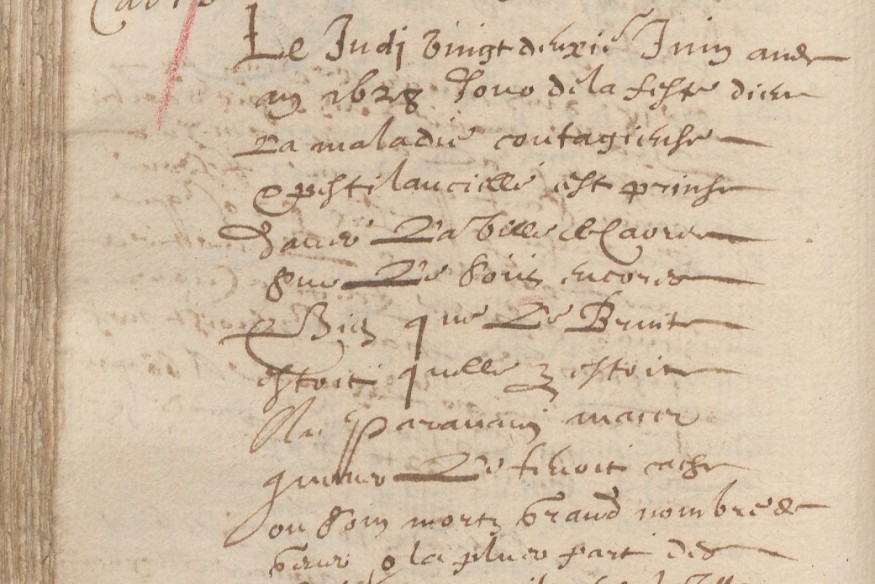 Le Judi vingt deuxie Juin aud
an 1628 Jour de la feste dieu
La maladie contagieuse
& pestilancielle est prinse
dans La ville de Caors
que Le soit encores
& Bien que Le Bruit
estoit quelle y estoit
Au paravant mais
quon Le tenoit cache
ou son mortz Grand nombre de
Gens & la plus part des